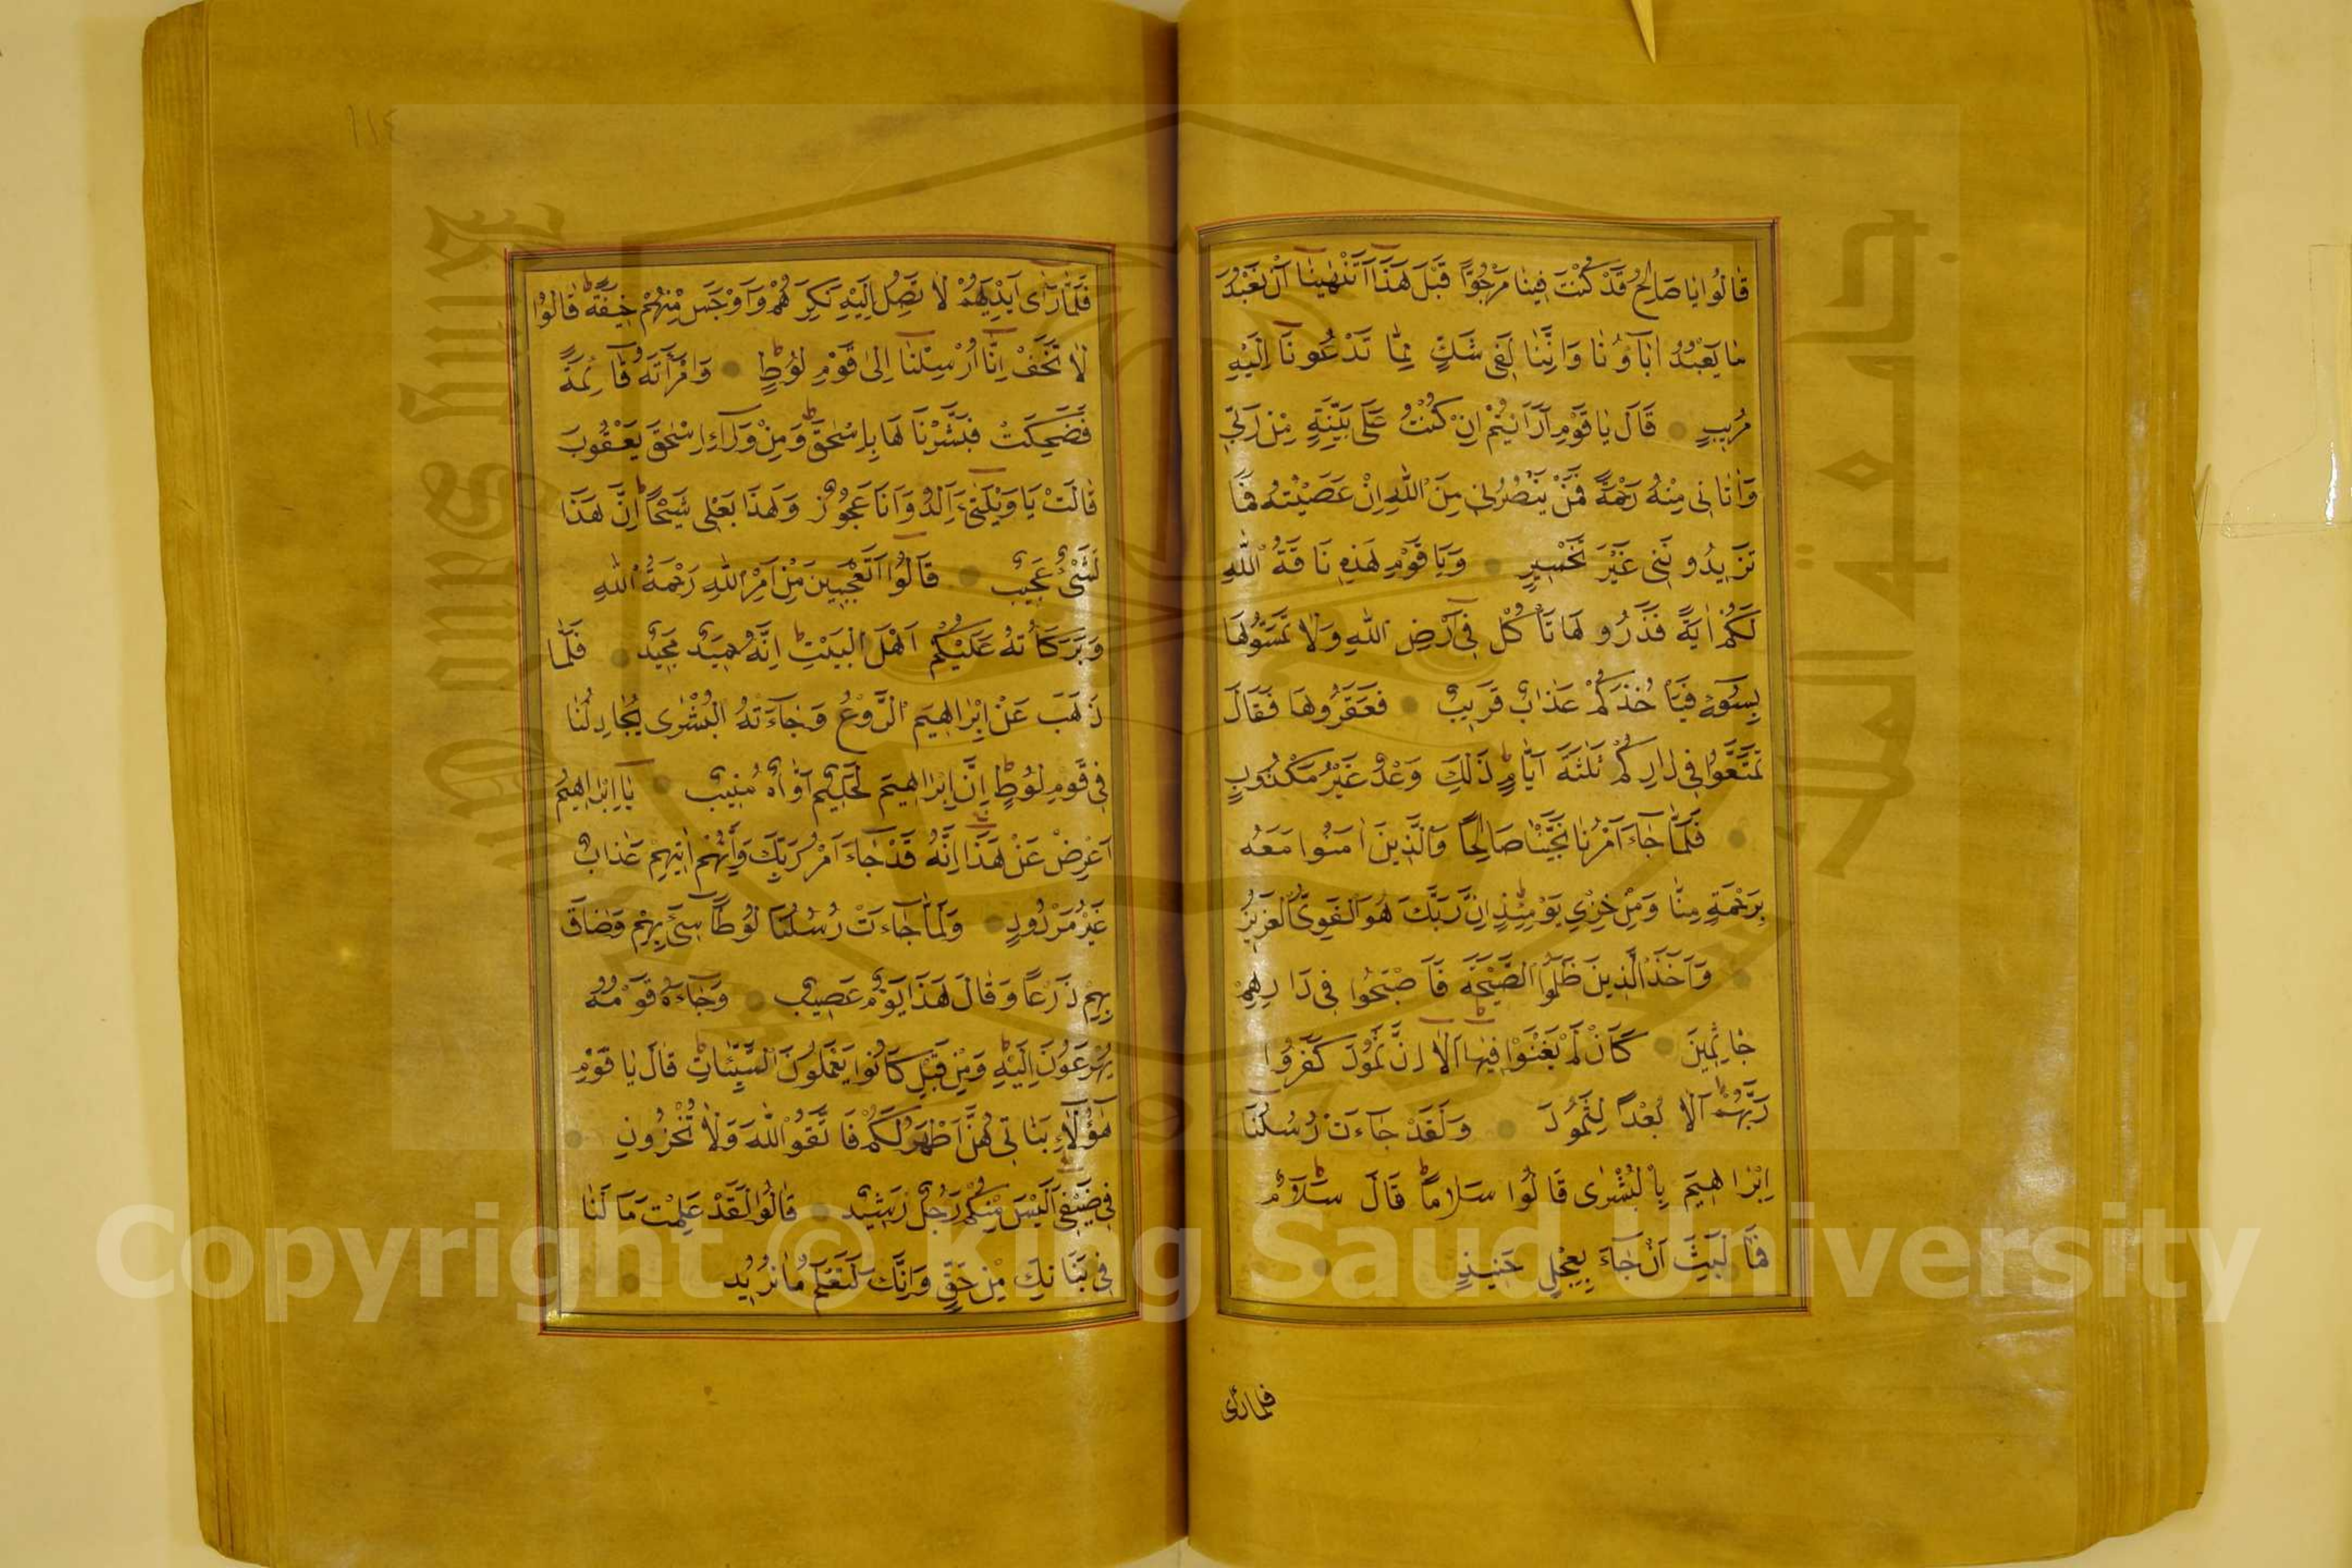 قَالُوا يَا صَالِحُ قَدْ كُنْتَ فِينَا مَرْجُوًّا قَبْلَ هَذَا أَتَنْهَينَا أَنْ نَعْبُدَ
مَا يَعْبُدُ اٰبَآؤُنَا وَاِنَّنَا لَفِى شَكٍّ مِمَّا تَدْعُونَا اِلَيْهِ
مُرِيبٍ قَالَ يَا قَوْمِ اَرَاَيْتُمْ اِنْ كُنْتُ عَلَى بَيِّنَةٍ مِنْ رَبِّى
وَاٰتَانِى مِنْهُ رَحْمَةً فَمَنْ يَنْصُرُنِى مِنَ اللّٰهِ اِنْ عَصَيْتُهُ فَمَا
تَزِيدُونَنِى غَيْرَ تَخْسِيرٍ وَيَا قَوْمِ هَذِهِ نَاقَةُ اللّٰهِ
لَكُمْ اٰيَةً فَذَرُوهَا تَأْكُلْ فِى اَرْضِ اللّٰهِ وَلَا تَمَسُّوهَا
بِسُوٓءٍ فَيَأْخُذَكُمْ عَذَابٌ قَرِيبٌ فَعَقَرُوهَا فَقَالَ
تَمَتَّعُوا فِى دَارِكُمْ ثَلٰثَةَ اَيَّامٍ ذَلِكَ وَعْدٌ غَيْرُ مَكْذُوبٍ
فَلَمَّا جَآءَ اَمْرُنَا نَجَّيْنَا صَالِحًا وَالَّذِينَ اٰمَنُوا مَعَهُ
بِرَحْمَةٍ مِنَّا وَمِنْ خِزْيِ يَوْمِئِذٍ اِنَّ رَبَّكَ هُوَ الْقَوِىُّ الْعَزِيزُ
وَاَخَذَ الَّذِينَ ظَلَمُوا الصَّيْحَةُ فَاَصْبَحُوا فِى دَارِهِمْ
جَاثِمِينَ كَاَنْ لَمْ يَغْنَوْا فِيهَا اَلَا اِنَّ ثَمُودَ كَفَرُوا
رَبَّهُمْ اَلَا بُعْدًا لِثَمُودَ وَلَقَدْ جَآءَتْ رُسُلُنَا
اِبْرَاهِيمَ بِالْبُشْرٰى قَالُوا سَلَامًا قَالَ سَلَامٌ
فَمَا لَبِثَ اَنْ جَآءَ بِعِجْلٍ حَنِيذٍ
فلما رأى
١١٤
فَلَمَّا رَآٰى اَيْدِيَهُمْ لَا تَصِلُ اِلَيْهِ نَكِرَهُمْ وَاَوْجَسَ مِنْهُمْ خِيفَةً قَالُوا
لَا تَخَفْ اِنَّا اُرْسِلْنَا اِلٰى قَوْمِ لُوطٍ وَامْرَاَتُهُ قَآئِمَةٌ
فَضَحِكَتْ فَبَشَّرْنَاهَا بِاِسْحٰقَ وَمِنْ وَرَآءِ اِسْحٰقَ يَعْقُوبَ
قَالَتْ يَا وَيْلَتٰىٓ ءَاَلِدُ وَاَنَا عَجُوزٌ وَهَذَا بَعْلِى شَيْخًا اِنَّ هَذَا
لَشَىْءٌ عَجِيبٌ قَالُوا اَتَعْجَبِينَ مِنْ اَمْرِ اللّٰهِ رَحْمَةُ اللّٰهِ
وَبَرَكَاتُهُ عَلَيْكُمْ اَهْلَ الْبَيْتِ اِنَّهُ حَمِيدٌ مَجِيدٌ فَلَمَّا
ذَهَبَ عَنْ اِبْرَاهِيمَ الرَّوْعُ وَجَآءَتْهُ الْبُشْرٰى يُجَادِلُنَا
فِى قَوْمِ لُوطٍ اِنَّ اِبْرَاهِيمَ لَحَلِيمٌ اَوَّاهٌ مُنِيبٌ يَآ اِبْرَاهِيمُ
اَعْرِضْ عَنْ هَذَا اِنَّهُ قَدْ جَآءَ اَمْرُ رَبِّكَ وَاِنَّهُمْ اٰتِيهِمْ عَذَابٌ
غَيْرُ مَرْدُودٍ وَلَمَّا جَآءَتْ رُسُلُنَا لُوطًا سِىٓءَ بِهِمْ وَضَاقَ
بِهِمْ ذَرْعًا وَقَالَ هَذَا يَوْمٌ عَصِيبٌ وَجَآءَهُ قَوْمُهُ
يُهْرَعُونَ اِلَيْهِ وَمِنْ قَبْلُ كَانُوا يَعْمَلُونَ السَّيِّئَاتِ قَالَ يَا قَوْمِ
هٰٓؤُلَآءِ بَنَاتِى هُنَّ اَطْهَرُ لَكُمْ فَاتَّقُوا اللّٰهَ وَلَا تُخْزُونِ
فِى ضَيْفِى اَلَيْسَ مِنْكُمْ رَجُلٌ رَشِيدٌ قَالُوا لَقَدْ عَلِمْتَ مَا لَنَا
فِى بَنَاتِكَ مِنْ حَقٍّ وَاِنَّكَ لَتَعْلَمُ مَا نُرِيدُ
جامعة الملك سعود
King Saud University
1957
Copyright © King Saud University